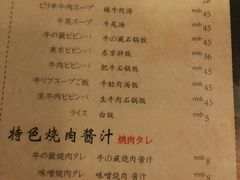 ピリ辛牛肉スープ 辣牛肉汤 rmb 45
牛尾スープ 牛尾汤 rmb 45
牛の蔵ビビンバ 牛の蔵石锅饭 rmb 45
東京ビビンバ 东京拌饭 rmb 36
牛肉ビビンバ 肥牛石锅饭 rmb
キリブスープご飯 牛肋肉汤饭 rmb
生牛肉ビビンバ 生牛肉石锅饭 rmb 45
ライス 白饭 rmb 5
特色焼肉醤汁 焼肉タレ
牛の蔵焼肉タレ 牛の蔵焼肉 酱汁 rmb 8
味噌焼肉タレ 味噌烧肉 酱汁